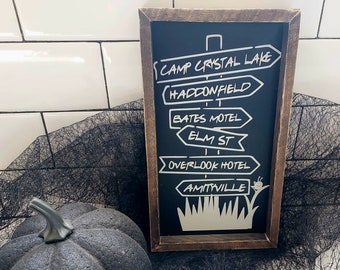 CAMP CRYSTAL LAKE
HADDONFIELD
BATES MOTEL
ELM ST
OVERLOOK HOTEL
AMITYVILLE